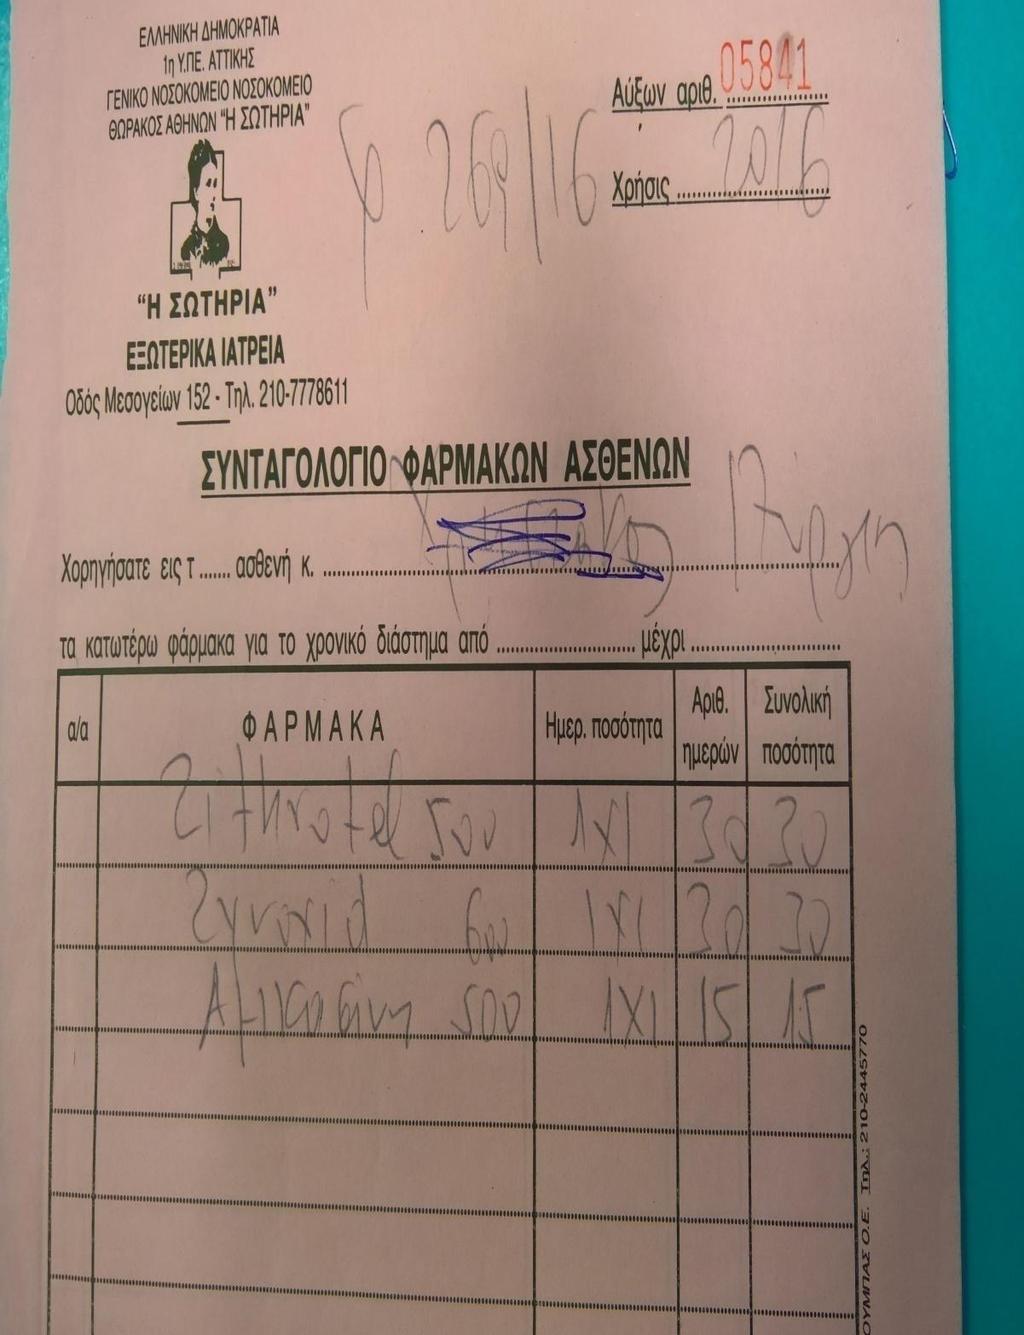 ΕΛΛΗΝΙΚΗ ΔΗΜΟΚΡΑΤΙΑ
1η Υ.ΠΕ. ΑΤΤΙΚΗΣ
ΓΕΝΙΚΟ ΝΟΣΟΚΟΜΕΙΟ ΝΟΣΟΚΟΜΕΙΟ
ΘΩΡΑΚΟΣ ΑΘΗΝΩΝ "Η ΣΩΤΗΡΙΑ"
Αύξων αριθ. 05841
φ 269/16
Χρήσις 2016
"Η ΣΩΤΗΡΙΑ"
ΕΞΩΤΕΡΙΚΑ ΙΑΤΡΕΙΑ
Οδός Μεσογείων 152 - Τηλ. 210-7778611
ΣΥΝΤΑΓΟΛΟΓΙΟ ΦΑΡΜΑΚΩΝ ΑΣΘΕΝΩΝ
Χορηγήσατε εις τ ....... ασθενή κ.
τα κατωτέρω φάρμακα για το χρονικό διάστημα από .......................... μέχρι ............................
α/α ΦΑΡΜΑΚΑ Ημερ. ποσότητα Αριθ. ημερών Συνολική ποσότητα
Zithrotel 500 1χ1 30 30
Zyvoxid 600 1χ1 30 30
Αμικασίνη 500 1χ1 15 15
ΟΥΜΠΑΣ Ο.Ε. Τηλ.: 210-2445770